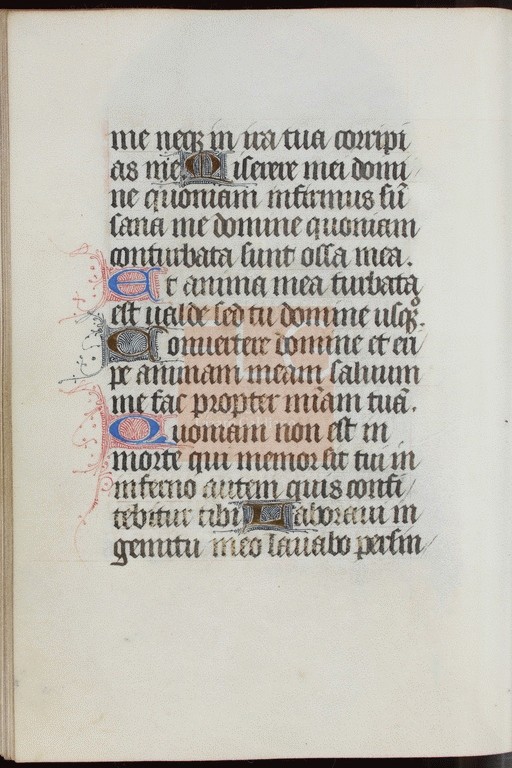 me neqꝫ in ira tua corripi
as me. Miserere mei domi
ne quoniam infirmus sū
sana me domine quoniam
conturbata sunt ossa mea.
Et anima mea turbata
est ualde sed tu domine usqꝫ.
Conuertere domine et eri
pe animam meam saluum
me fac propter miam tuā.
Quoniam non est in
morte qui memor sit tui in
inferno autem quis confi
tebitur tibi Laboraui in
gemitu meo lauabo per sin